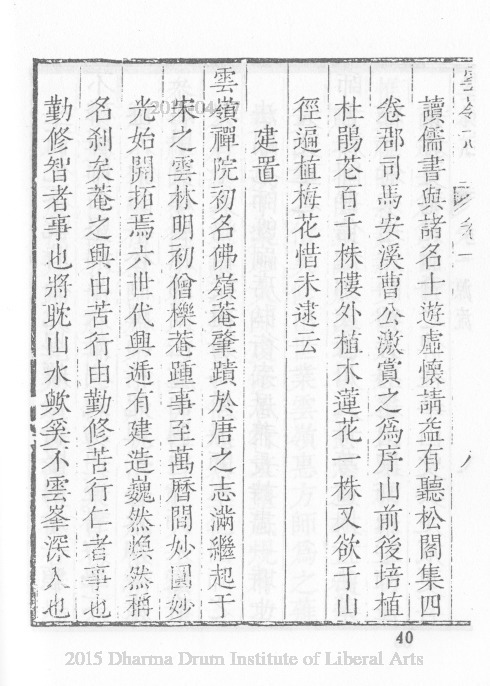 讀儒書與諸名士遊虛懷請益有聽松閣集四
卷郡司馬安溪曹公激賞之爲序山前後培植
杜鵑花百千株樓外植木蓮花一株又欲于山
徑遍植梅花惜未逮云
建置
雲嶺禪院初名佛嶺菴肇蹟於唐之志滿繼起于
宋之雲林明初僧櫟菴踵事至萬曆間妙圓妙
光始開拓焉六世代興遞有建造巍然煥然稱
名刹矣菴之興由苦行由勤修苦行仁者事也
勤修智者事也將耽山水歟奚不雲峯深入也
40
2015 Dharma Drum Institute of Liberal Arts